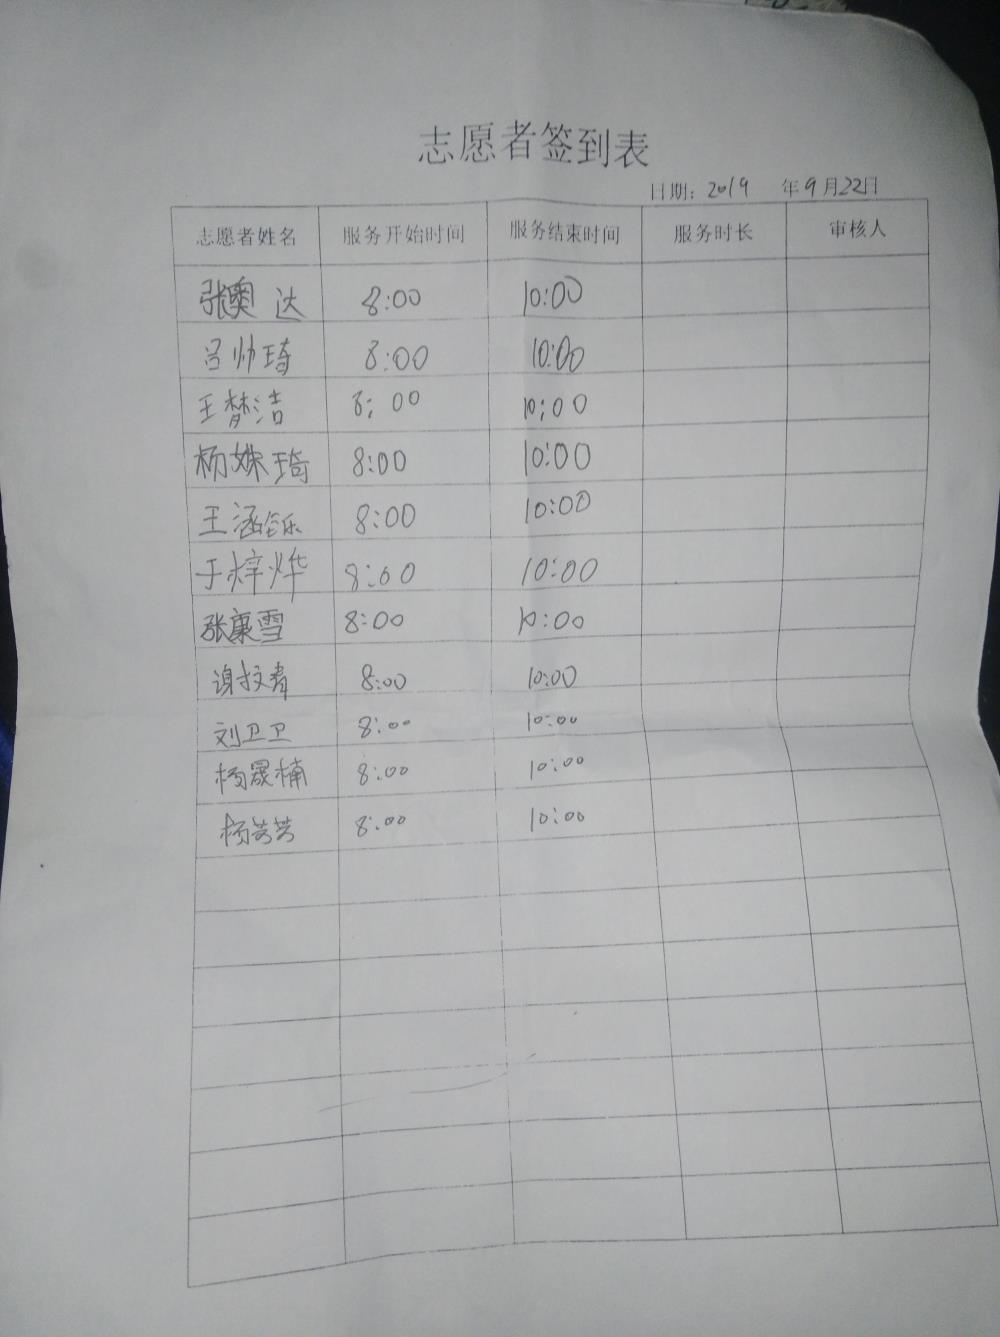 志愿者签到表
日期：2019 年9月22日
志愿者姓名 服务开始时间 服务结束时间 服务时长 审核人
张奥达 8:00 10:00
吕帅琦 8:00 10:00
王梦洁 8:00 10:00
杨姝琦 8:00 10:00
王涵铄 8:00 10:00
于梓烨 8:00 10:00
张康雪 8:00 10:00
谢 8:00 10:00
刘卫卫 8:00 10:00
杨晟楠 8:00 10:00
杨芳芳 8:00 10:00